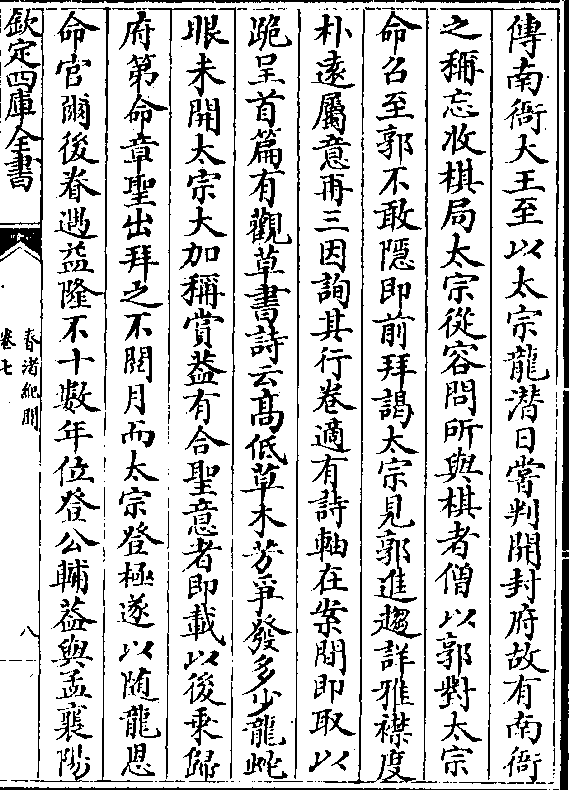 傳南衙大王至以太宗龍潜日嘗判開封府故有南衙
之稱忘收棋局太宗從容問所與棋者僧以郭對太宗
命召至郭不敢隠即前拜謁太宗見郭進趨詳雅襟度
朴逺屬意再三因詢其行卷適有詩軸在案間即取以
跪呈首篇有觀草書詩云髙低草木芳爭發多少龍蛇
眼未開太宗大加稱賞葢有合聖意者即載以後乗歸
府第命章聖出拜之不閱月而太宗登極遂以随龍恩
命官爾後眷遇益隆不十數年位登公輔葢與孟襄陽
欽定四庫全書
春渚紀聞
卷七
八